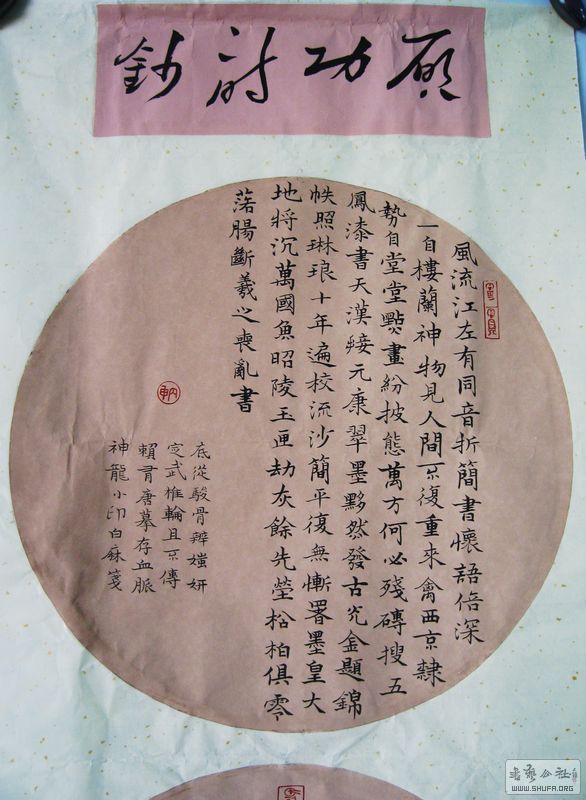 啟功詩鈔
風流江左有同音折簡書懷語倍深
一自樓蘭神物見人間不復重來禽西京隸
勢自堂堂點畫紛披態萬方何必殘磚搜五
鳳漆書天漢接元康翠墨黟然發古光金題錦
帙照琳琅十年遍校流沙簡平復無慚署墨皇大
地將沉萬國魚昭陵玉匣劫灰餘先塋松柏俱零
落腸斷羲之喪亂書
底從駿骨辨媸妍
定武椎輪且不傳
賴有唐摹存血脈
神龍小印白麻箋
書藝公社
WWW.SHUFA.ORG